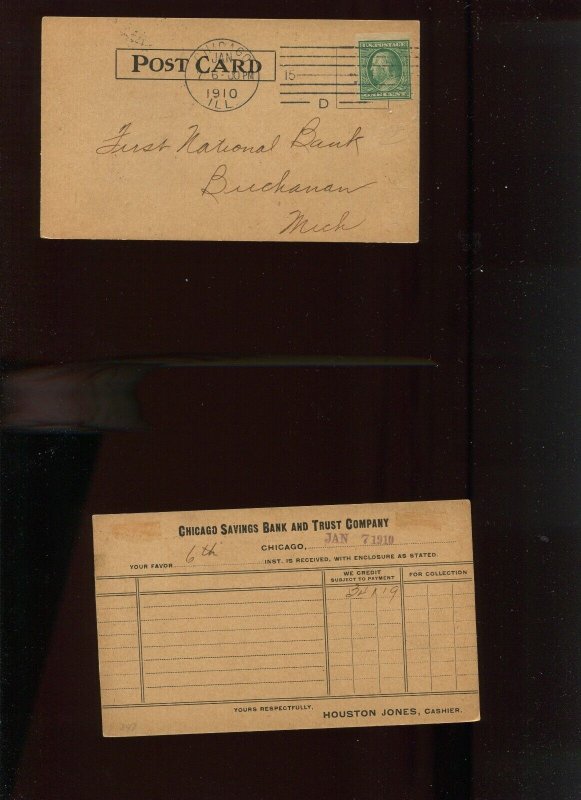 CHICAGO
JAN
6-30 PM
1910
ILL
15
D
POST CARD
U.S. POSTAGE
ONE CENT
First National Bank
Buchanan
Mich
CHICAGO SAVINGS BANK AND TRUST COMPANY
CHICAGO, JAN 7 1910
YOUR FAVOR 6th INST. IS RECEIVED, WITH ENCLOSURE AS STATED.
WE CREDIT
SUBJECT TO PAYMENT
FOR COLLECTION
YOURS RESPECTFULLY,
HOUSTON JONES, CASHIER.